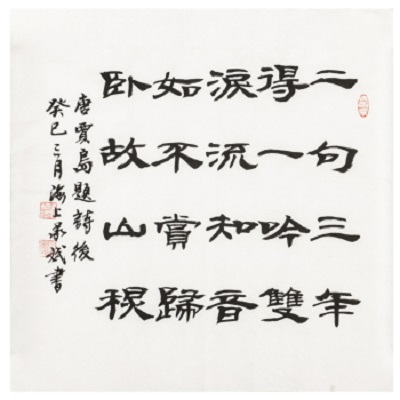 二句三年
得一吟雙
淚流知音
如不賞歸
卧故山秋
唐賈島題詩後
癸巳三月海上斌書